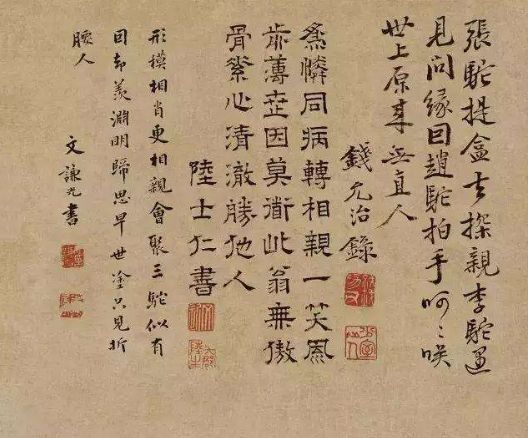 張駝提盒去探親李駝遇
見問緣囙趙駝拍手呵〻咲
世上原來無直人
錢允治錄
為憐同病轉相親一笑風
歬薄世因莫衟此翁無傲
骨素心清澈勝他人
陸士仁書
形模相肖更相親會聚三駝似有
囙却羨淵明歸思早世塗只見折
腰人
文謙光書